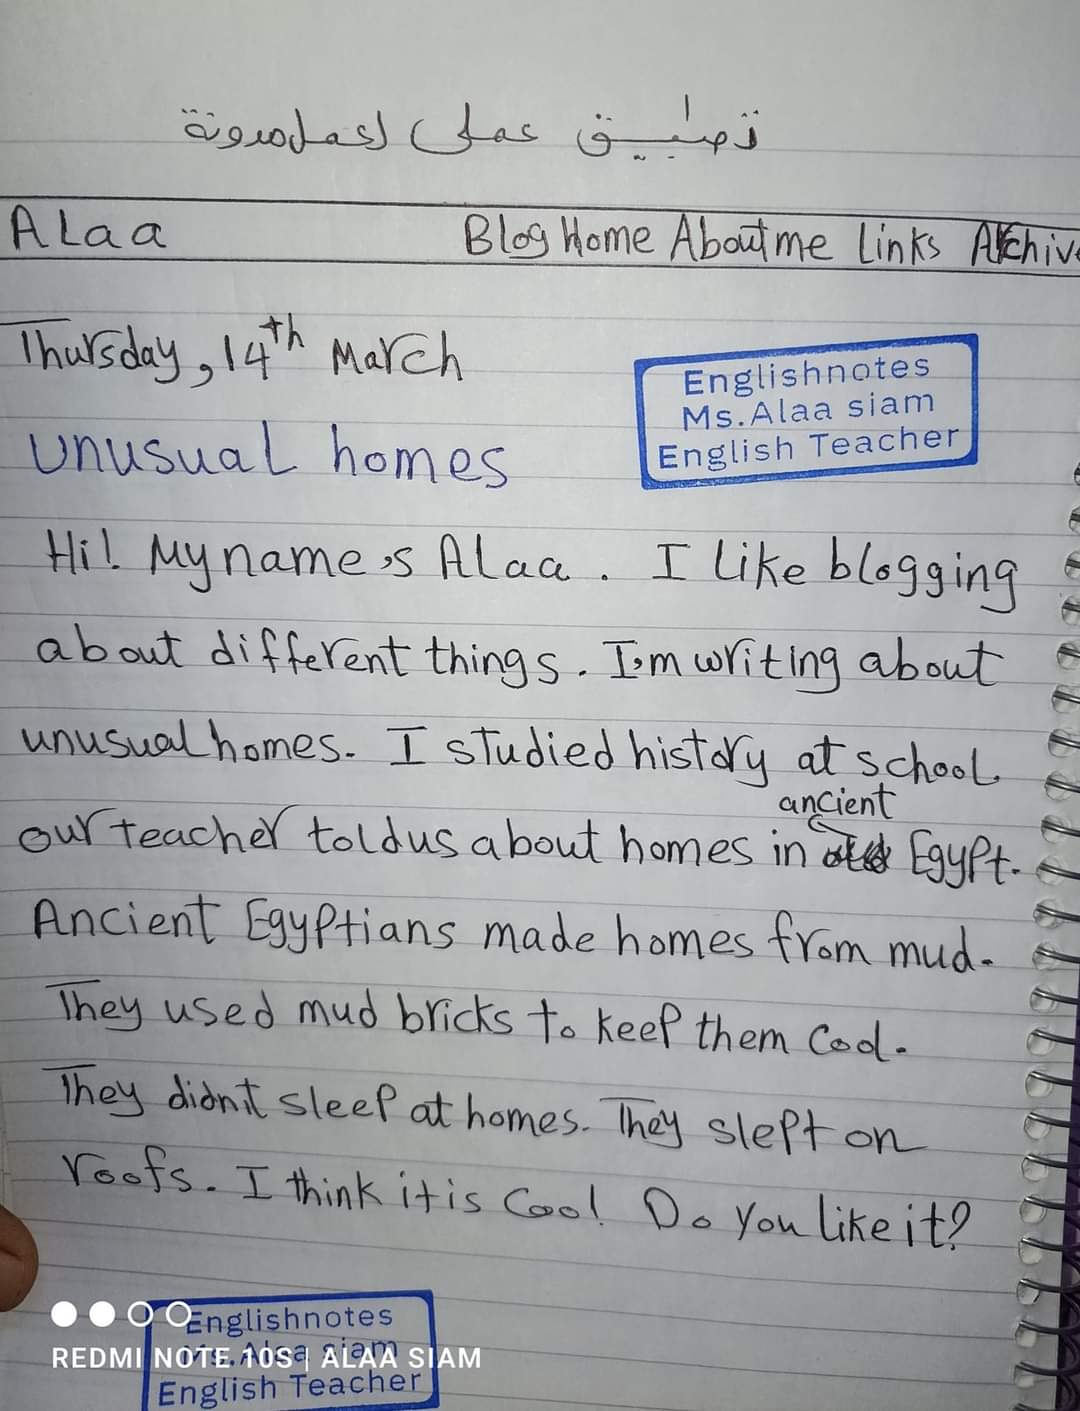 تطبيق عملى لعمل مدونة
ALaa Blog Home About me Links Archive
Thursday, 14th March
Englishnotes
Ms.Alaa siam
English Teacher
Unusual homes
Hi! My name's Alaa. I like blogging
about different things. I'm writing about
unusual homes. I studied history at school.
ancient
our teacher told us about homes in Egypt.
Ancient Egyptians made homes from mud.
They used mud bricks to keep them cool.
They didn't sleep at homes. They slept on
roofs. I think it is cool! Do you like it?
Englishnotes
Ms.Alaa siam
English Teacher
REDMI NOTE 10S | ALAA SIAM